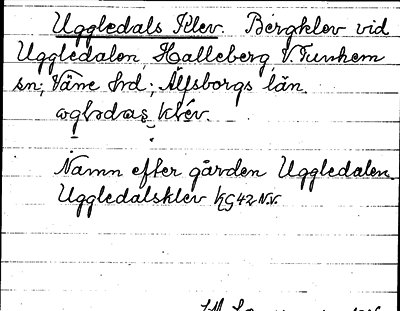 Uggledals Klev. Bergklev vid
Uggledalen, Halleberg, V. Tunhem
sn; Väne hrd; Älfsborgs län.
Namn efter gården Uggledalen.
Uggledalsklev KG42 N.V.